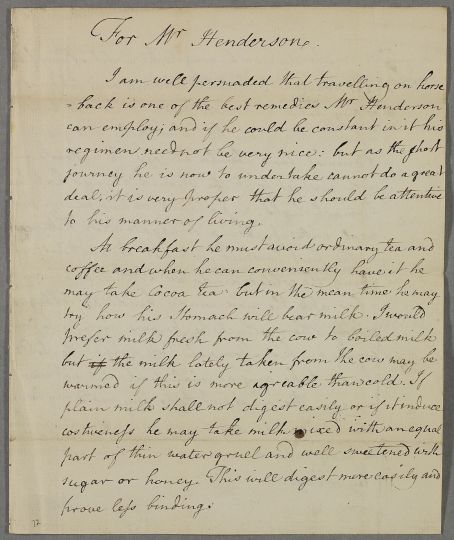 For Mr Henderson.
I am well persuaded that travelling on horse
-back is one of the best remedies Mr Henderson
can employ; and if he could be constant in it his
regimen need not be very nice: but as the short
journey he is now to undertake cannot do a great
deal, it is very proper that he should be attentive
to his manner of living.
At breakfast he must avoid ordinary tea and
coffee and when he can conveniently have it he
may take Cocoa tea but in the mean time he may
try how his Stomach will bear milk. I would
prefer milk fresh from the cow to boiled milk
but if the milk lately taken from the cow may be
warmed if this is more agreable than cold. If
plain milk shall not digest easily or if it induce
costiveness he may take milk mixed with an equal
part of thin water gruel and well sweetened with
sugar or honey. This will digest more easily and
prove less binding.